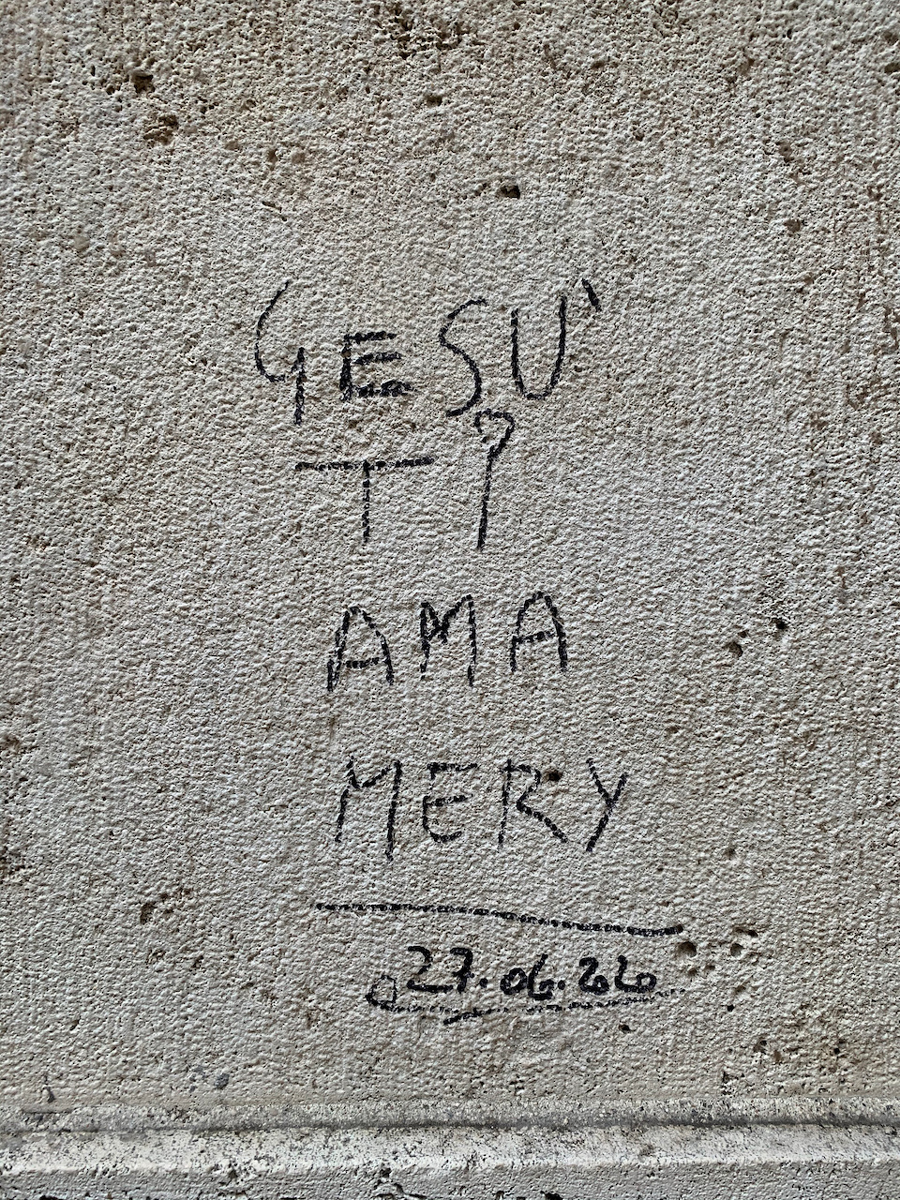 GESU'
TI
AMA
MERY
27.06.2020